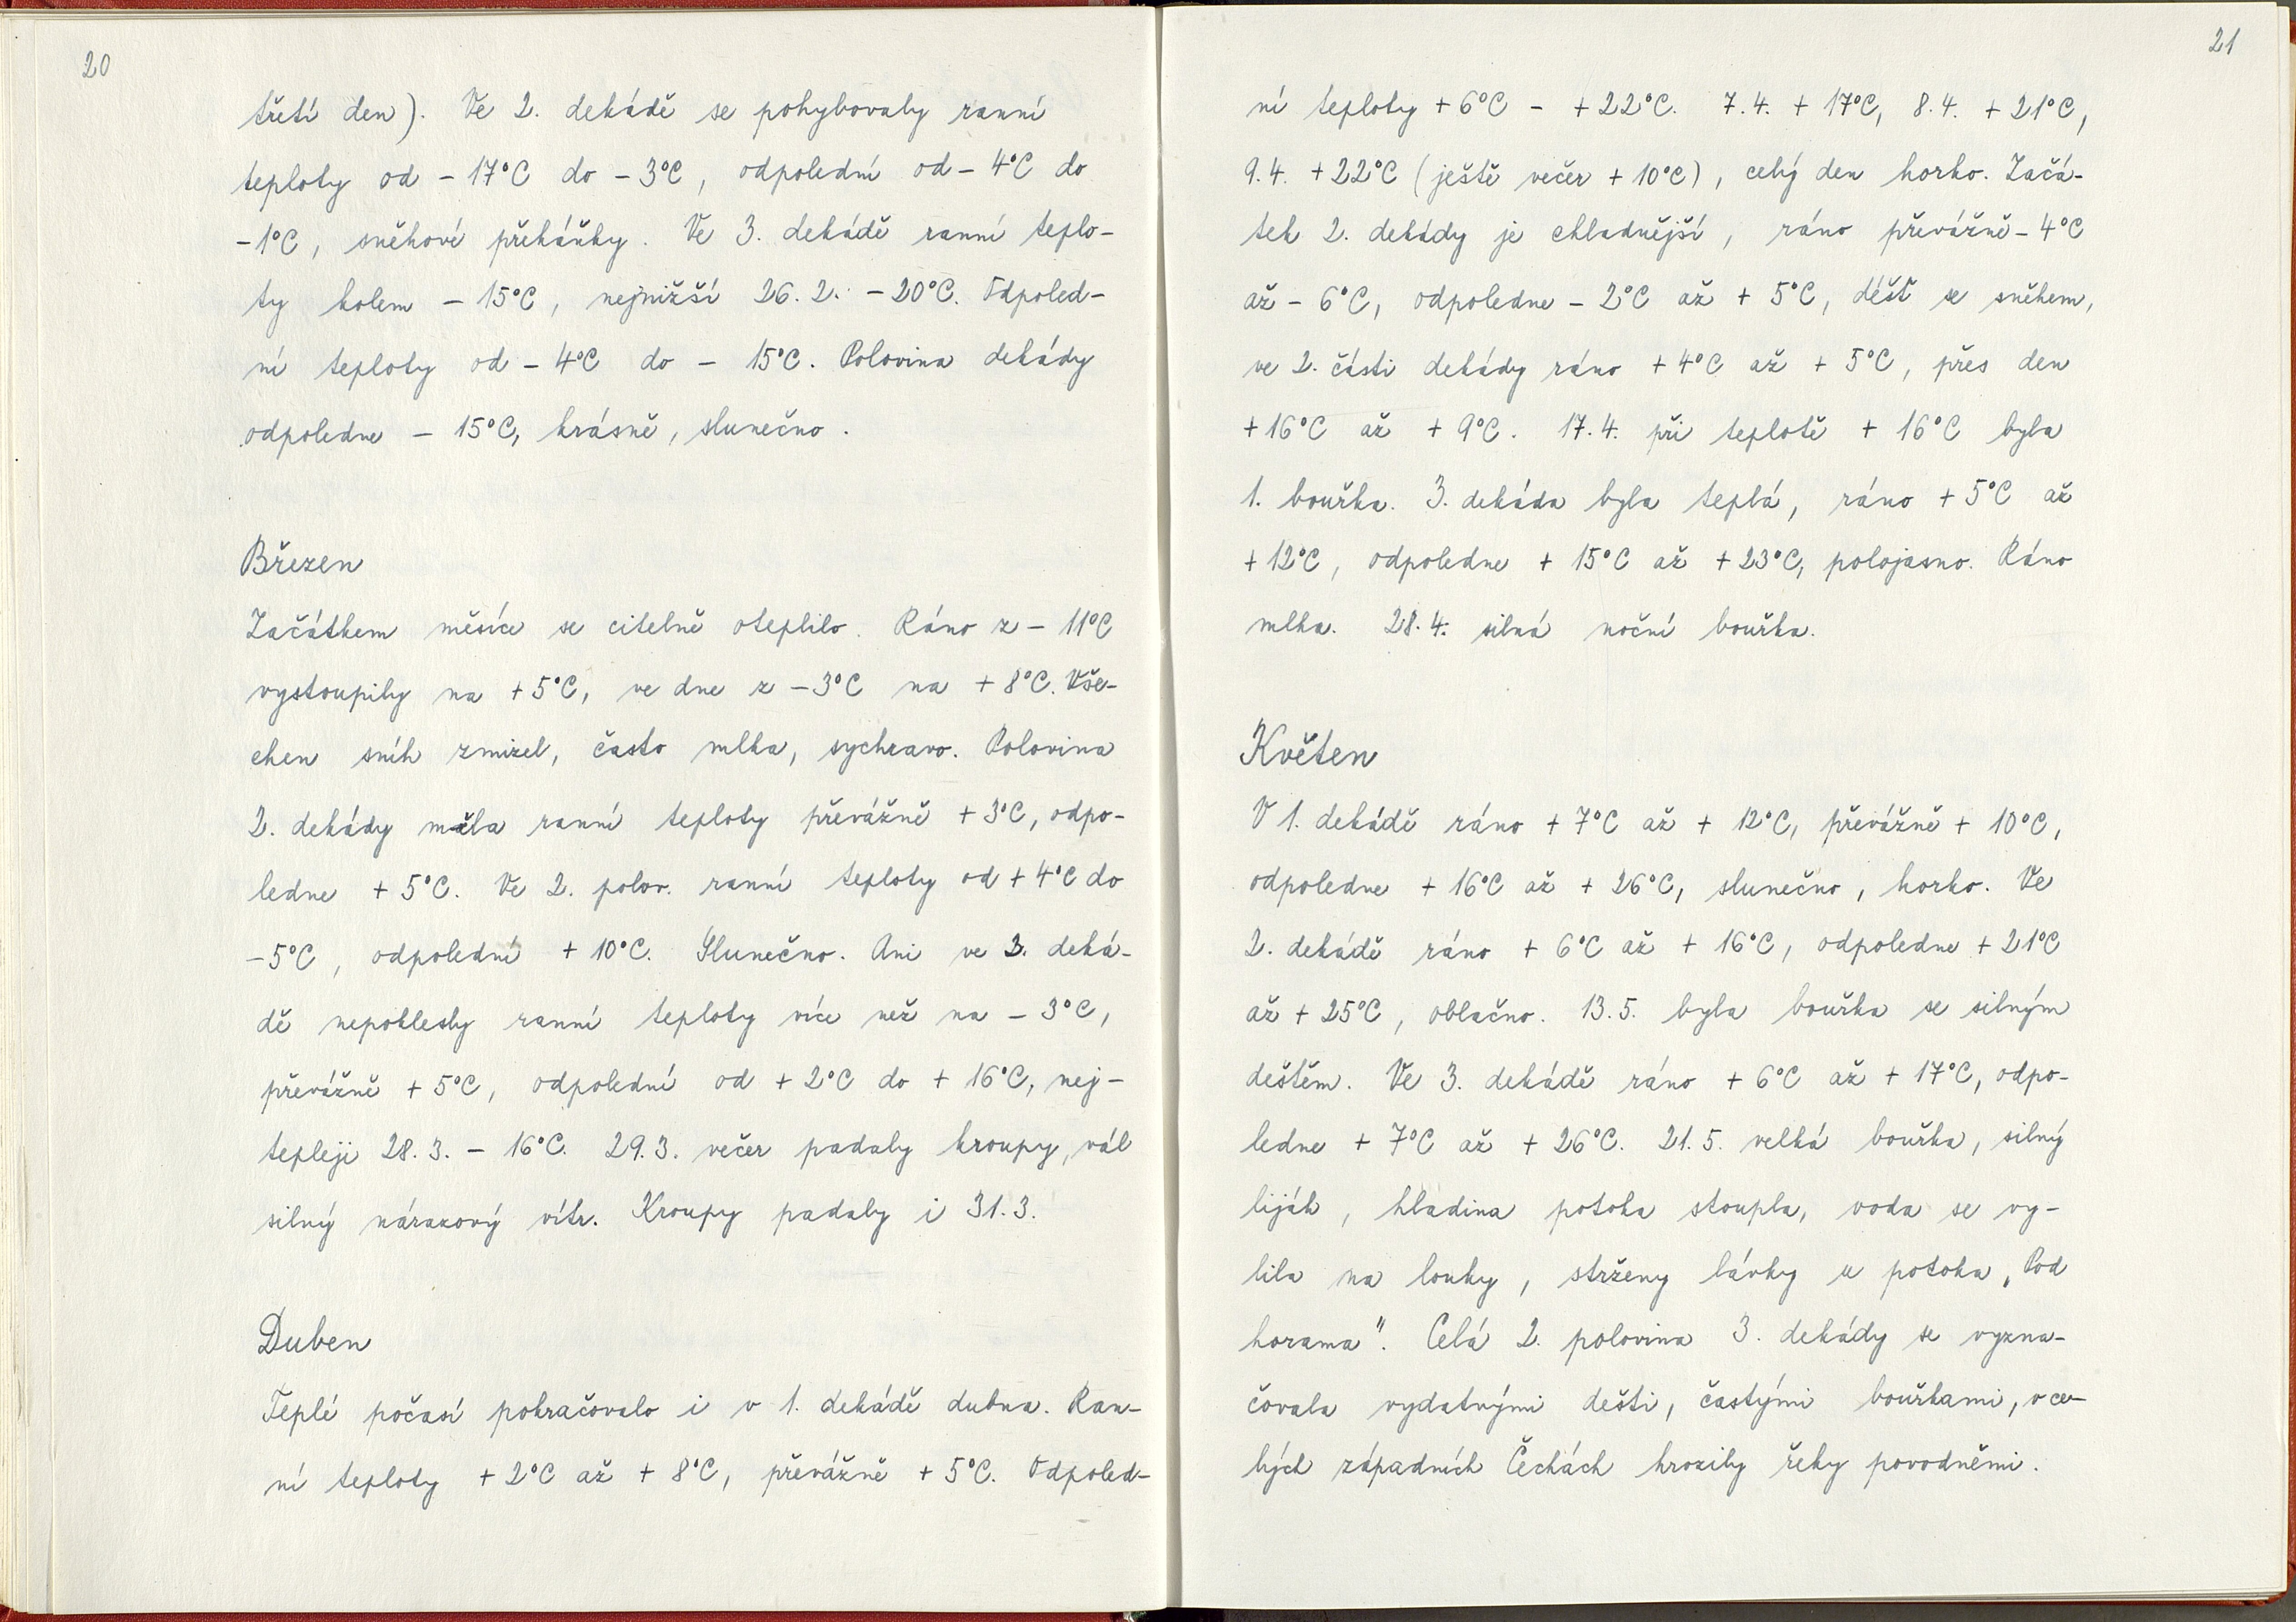 20
třetí den). Ve 2. dekádě se pohybovaly ranní
teploty od - 17°C do - 3°C, odpolední od - 4°C do
- 1°C, sněhové přeháňky. Ve 3. dekádě ranní teplo-
ty kolem - 15°C, nejnižší 26. 2. - 20°C. Odpoled-
ní teploty od - 4°C do - 15°C. Polovina dekády
odpoledne - 15°C, krásně, slunečno.
Březen
Začátkem měsíce se citelně oteplilo. Ráno z - 11°C
vystoupily na + 5°C, ve dne z - 3°C na + 8°C. Vše-
chen sníh zmizel, často mlha, sychravo. Polovina
2. dekády měla ranní teploty převážně + 3°C, odpo-
ledne + 5°C. Ve 2. polov. ranní teploty od + 4°C do
- 5°C, odpolední + 10°C. Slunečno. Ani ve 3. deká-
dě nepoklesly ranní teploty více než na - 3°C,
převážně + 5°C, odpolední od + 2°C do + 16°C, nej-
tepleji 28. 3. - 16°C. 29. 3. večer padaly kroupy, vál
silný nárazový vítr. Kroupy padaly i 31. 3.
Duben
Teplé počasí pokračovalo i v 1. dekádě dubna. Ran-
ní teploty + 2°C až + 8°C, převážně + 5°C. Odpoled-
21
ní teploty + 6°C - + 22°C. 7. 4. + 17°C, 8. 4. + 21°C,
9. 4. + 22°C (ještě večer + 10°C), celý den horko. Začá-
tek 2. dekády je chladnější, ráno převážně - 4°C
až - 6°C, odpoledne - 2°C až + 5°C, déšť se sněhem,
ve 2. části dekády ráno + 4°C až + 5°C, přes den
+ 16°C až + 9°C. 17. 4. při teplotě + 16°C byla
1. bouřka. 3. dekáda byla teplá, ráno + 5°C až
+ 12°C, odpoledne + 15°C až + 23°C, polojasno. Ráno
mlha. 28. 4. silná noční bouřka.
Květen
V 1. dekádě ráno + 7°C až + 12°C, převážně + 10°C,
odpoledne + 16°C až + 26°C, slunečno, horko. Ve
2. dekádě ráno + 6°C až + 16°C, odpoledne + 21°C
až + 25°C, oblačno. 13. 5. byla bouřka se silným
deštěm. Ve 3. dekádě ráno + 6°C až + 17°C, odpo-
ledne + 7°C až + 26°C. 21. 5. velká bouřka, silný
liják, hladina potoka stoupla, voda se vy-
lila na louky, strženy lávky u potoka „Pod
horama". Celá 2. polovina 3. dekády se vyzna-
čovala vydatnými dešti, častými bouřkami, v ce-
lých západních Čechách hrozily řeky povodněmi.